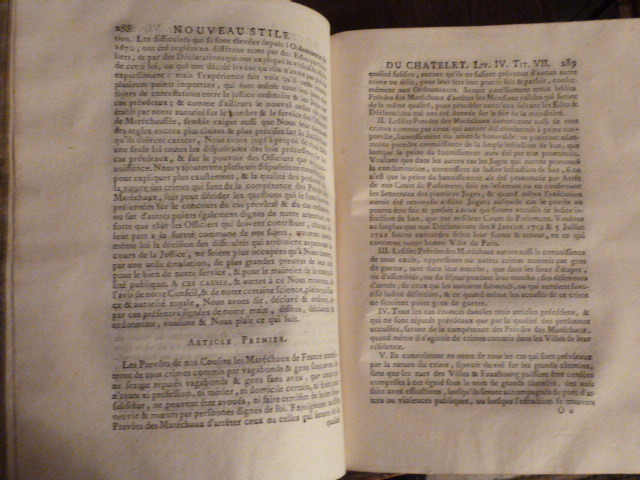 288 NOUVEAU STILE
tion. Les difficultés qui se sont élevées depuis l'Ordonnance de
1670, ont été reglées en différens tems par des Edits particu-
liers, & par des Déclarations qui ont expliqué le véritable
de cette loi, ou qui ont décidé les cas qu'elle n'avoit pas
expressément : mais l'expérience fait voir qu'il reste encore
plusieurs points importans, qui font naître tous les jours des
sujets de contestations entre la justice ordinaire & les Juges des
cas prévôtaux ; & comme d'ailleurs le nouvel ordre
établi par notre autorité sur le nombre & le service des Officiers
de Maréchaussée, semble exiger aussi que Nous leur donnions
des regles encore plus claires & plus précises sur la Jurisdiction
qu'ils doivent exercer, Nous avons jugé à propos de réunir dans
une seule loi toutes les dispositions des loix précédentes sur les
cas prévôtaux, & sur le pouvoir des Officiers qui en
noissance. Nous y ajouterons plusieurs dispositions nouvelles
pour expliquer plus exactement, & la qualité des personnes &
la nature des crimes qui sont de la compétence des Prévôts des
Maréchaux, soit pour décider les questions qui se sont souvent
présentées sur le concours du cas prévôtal & du cas ordinaire
ou sur d'autres points également dignes de notre attention,
sorte que tous les Officiers qui doivent contribuer, chacun
leur part à la sureté commune de nos sujets, trouvent dans
même loi la décision des difficultés qui arrêtoient
cours de la Justice, ne soient plus occupés qu'à Nous donner
par une utile émulation, de plus grandes preuves de leur
pour le bien de notre service, & pour le maintien de la tranquil-
lité publique. A CES CAUSES, & autres à ce Nous mouvans,
l'avis de notre Conseil, & de notre certaine science, pleine
ce & autorité royale, Nous avons dit, déclaré & ordonné,
par ces présentes signées de notre main, disons, déclarons &
ordonnons, voulons & Nous plaît ce qui suit.
ARTICLE PREMIER.
Les Prevôts de nos Cousins les Maréchaux de France
tront de tous crimes commis par vagabonds & gens sans aveu
ne seront reputés vagabonds & gens sans aveu, que ceux
n'ayant ni profession, ni métier, ni domicile certain, ni bien pour
subsister, ne peuvent être avoués, ni faire certifier de leurs bon-
nes vie & mœurs par personnes dignes de foi. Enjoignons
Prevôts des Maréchaux d'arrêter ceux ou celles qui seront de la
qualité
DU CHATELET. LIV. IV. TIT. VII. 289
qualité susdite, encore qu'ils ne fussent prévenus d'aucun autre
crime ou délit, pour leur être leur procès fait & parfait, confor-
mément aux Ordonnances. Seront pareillement tenus lesdits
Prévôts des Maréchaux d'arrêter les Mendians valides qui seront
de la même qualité, pour procéder contr'eux suivant les Edits &
Déclarations qui ont été donnés sur le fait de la mendicité.
II. Lesdits Prévôts des Maréchaux connoîtront aussi de tous
crimes commis par ceux qui auront été condamnés à peine cor-
porelle, bannissement ou amende honorable : ne pourront néan-
moins prendre connoissance de la simple infraction de ban, que
lorsque la peine de bannissement aura été par eux prononcée.
Voulons que dans les autres cas les Juges qui auront prononcé
la condamnation, connoissent de ladite infraction de ban, si ce
n'est que la peine de bannissement ait été prononcée par Arrêt
de nos Cours de Parlement, soit en infirmant ou en confirmant
les Sentences des premiers Juges ; & quand même l'exécution
auroit été renvoyée ausdits Juges, ausquels cas le procès ne
pourra être fait & parfait à ceux qui seront accusés de ladite in-
fraction de ban, que par nosdites Cours de Parlement. Voulons
au surplus que nos Déclarations des 8 Janvier 1719 & 5 Juillet
1722 soient exécutées selon leur forme & teneur, en ce qui
concerne notre bonne Ville de Paris.
III. Lesdits Prévôts des Maréchaux auront aussi la connoissance
de tous excès, oppressions ou autres crimes commis par gens
de guerre, tant dans leur marche, que dans les lieux d'étapes,
ou d'assemblée, ou de séjour pendant leur marche ; des déserteurs
d'armée, de ceux qui les auroient subornés, ou qui auroient favo-
risé ladite désertion, & ce quand même les accusés de ce crime
ne seroient point gens de guerre.
IV. Tous les cas énoncés dans les trois articles précédens, &
qui ne sont réputés prévôtaux que par la qualité des personnes
accusées, seront de la compétence des Prévôts des Maréchaux,
quand même il s'agiroit de crimes commis dans les Villes de leur
résidence.
V. Ils connoîtront en outre de tous les cas qui sont prévôtaux
par la nature du crime, sçavoir du vol sur les grands chemins,
sans que les rues des Villes & Fauxbourgs puissent être censées
comprises à cet égard sous le nom de grands chemins, des vols
faits avec effraction, lorsqu'ils seront accompagnés de port d'ar-
mes ou violences publiques, ou lorsque l'effraction se trouvera
O o